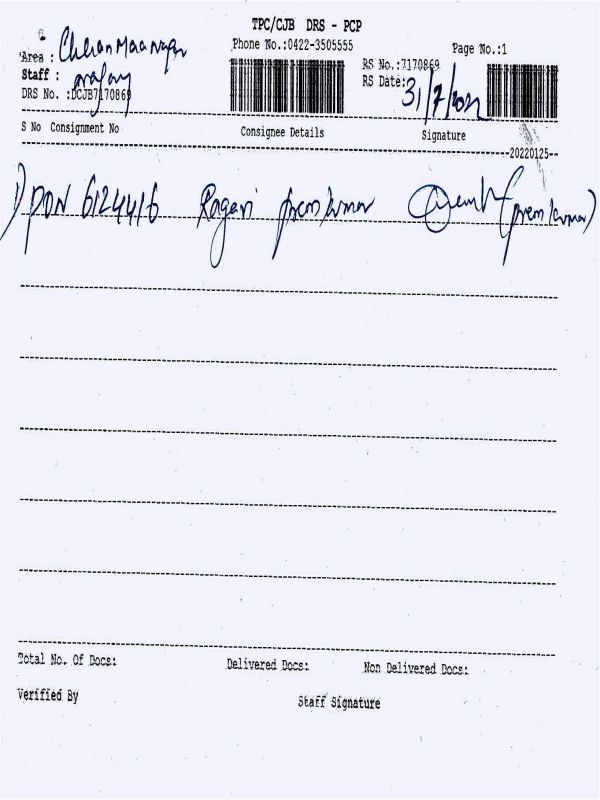 TPC/CJB DRS - PCP
Phone No.:0422-3505555 Page No.:1
Area : Cheran Maa nagar
Staff :
RS No.:7170869
DRS No. :DCJB7170869
RS Date: 31/7/2022
S No Consignment No Consignee Details Signature
20220125
1) PON 6124416 Ragavi premkumar (premkumar)
Total No. Of Docs: Delivered Docs: Non Delivered Docs:
Verified By Staff Signature